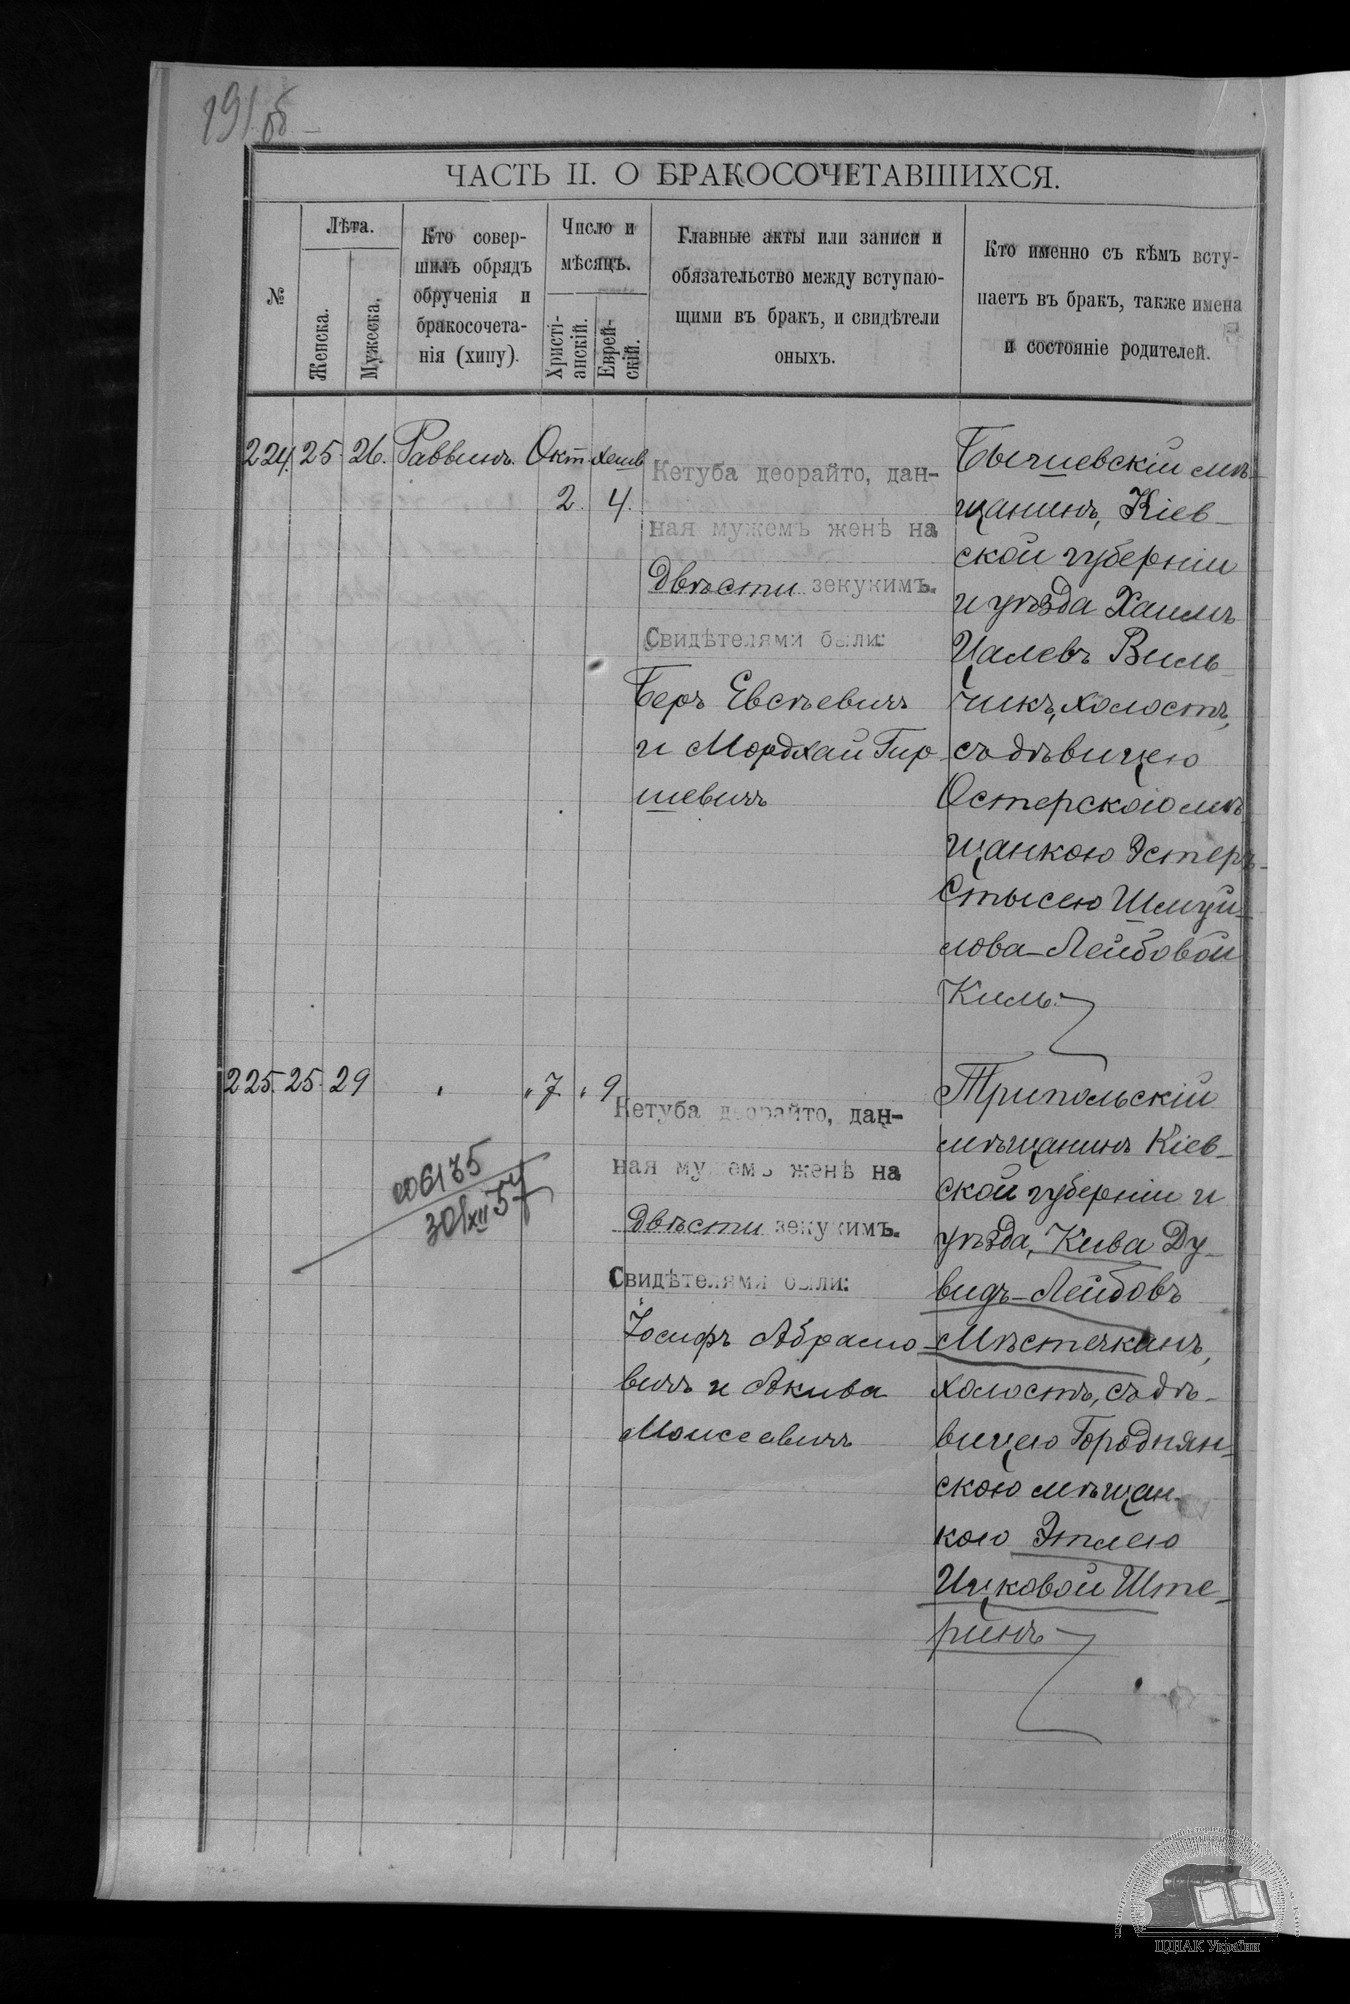 191 об
ЧАСТЬ II. О БРАКОСОЧЕТАВШИХСЯ.
№
Лѣта.
Женска.
Мужеска.
Кто совер-
шилъ обрядъ
обрученія и
бракосочета-
нія (хипу).
Число и
мѣсяцъ.
Христі-
анскій.
Еврей-
скій.
Главные акты или записи и
обязательство между вступаю-
щими въ бракъ, и свидѣтели
оныхъ.
Кто именно съ кѣмъ всту-
паетъ въ бракъ, также имена
и состояніе родителей.
224. 25 26. Раввинъ. Окт. Хешв
2. 4.
Кетуба деорайто, дан-
ная мужемъ женѣ на
Двѣсти зекукимъ.
Свидѣтелями были:
Беръ Евсѣевичъ
и Мордхай Гир
шевичъ
Бышевскій мѣ-
щанинъ, Кіев-
ской губерніи
и уѣзда Хаимъ
Цалевъ Виль-
чикъ, холостъ,
съ дѣвицею
Остерскою мѣ-
щанкою Эстеръ-
Стысею Шмуй-
лова-Лейбовой
Киль.
225. 25. 29 " " 7. " 9
Кетуба деорайто, дан-
ная мужемъ женѣ на
Двѣсти зекукимъ.
Свидѣтелями были:
Іосифъ Абрамо-
вичъ и Акива
Моисеевичъ
Трипольскій
мѣщанинъ Кіев-
ской губерніи и
уѣзда, Кива Ду-
видъ-Лейбовъ
Мѣстечканъ,
холостъ, съ дѣ-
вицею Городнян-
скою мѣщан-
кою Этлею
Ицковой Ште-
ринъ
006135
30/XII 57
ЦНАК України